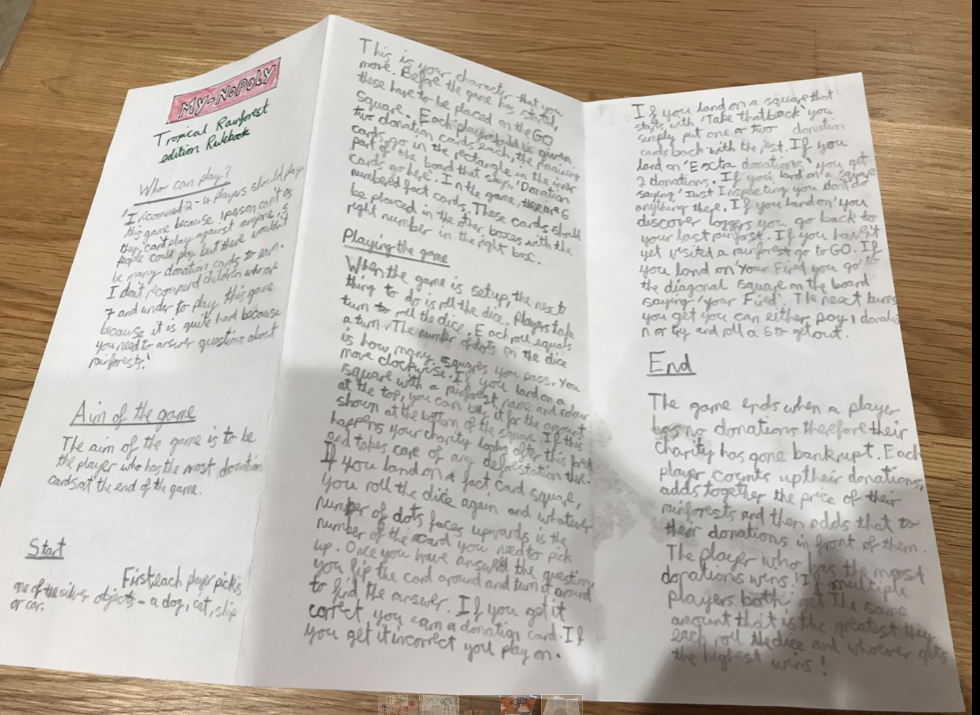 MY-NOPOLY
Tropical Rainforest
edition Rulebook
Who can play?
'I recommend 2-4 players should play
this game because 1 person can't as
they can't play against anyone. 5
people could play but there wouldn't
be many donation cards to earn.
I don't recommend children who are
7 and under to play this game
because it is quite hard because
you need to answer questions about
rainforests!'
Aim of the game
The aim of the game is to be
the player who has the most donation
cards at the end of the game.
Start
First each player picks
one of the silver objects - a dog, cat, ship
or car.
This is your character that you
move. Before the game has started,
these have to be placed on the GO
square. Each player should be given
two donation cards each, the remaining
cards go in the rectangle in the inner
part of the board that says, 'Donation
cards go here'. In the game, there are 6
numbered fact cards. These cards should
be placed in the other boxes with the
right number in the right box.
Playing the game
When the game is setup, the next
thing to do is roll the dice. Players take
turn to roll the dice. Each roll equals
a turn. The number of dots on the dice
is how many squares you pass. You
move clockwise. If you land on a
square with a rainforest name and colour
at the top, you can buy it for the amount
shown at the bottom of the square. If this
happens your charity looks after this forest
and takes care of any deforestation there.
If you land on a fact card square,
you roll the dice again and whatever
number of dots faces upwards is the
number of the card you need to pick
up. Once you have answered the question
you flip the card around and turn it around
to find the answer. If you get it
correct you earn a donation card. If
you get it incorrect you play on.
If you land on a square that
starts with 'Take that back' you
simply put one or two donation
cards back with the rest. If you
land on 'Eocta donations' you get
2 donations. If you land on a square
saying 'Just Inspecting you don't do
anything there. If you land on 'You
discover loggers you go back to
your last rainforest. If you haven't
yet visited a rainforest go to GO. If
you land on Your Fired you go to
the diagonal square on the board
saying 'your Fried'. The next turns
you get you can either pay 1 donatio
n or try and roll a 6 to get out.
End
The game ends when a player
has no donations therefore their
charity has gone bankrupt. Each
player counts up their donations,
adds together the price of their
rainforests and then adds that to
their donations in front of them.
The player who has the most
donations wins! If multiple
players both get the same
amount that is the greatest they
each roll the dice and whoever gets
the highest wins!